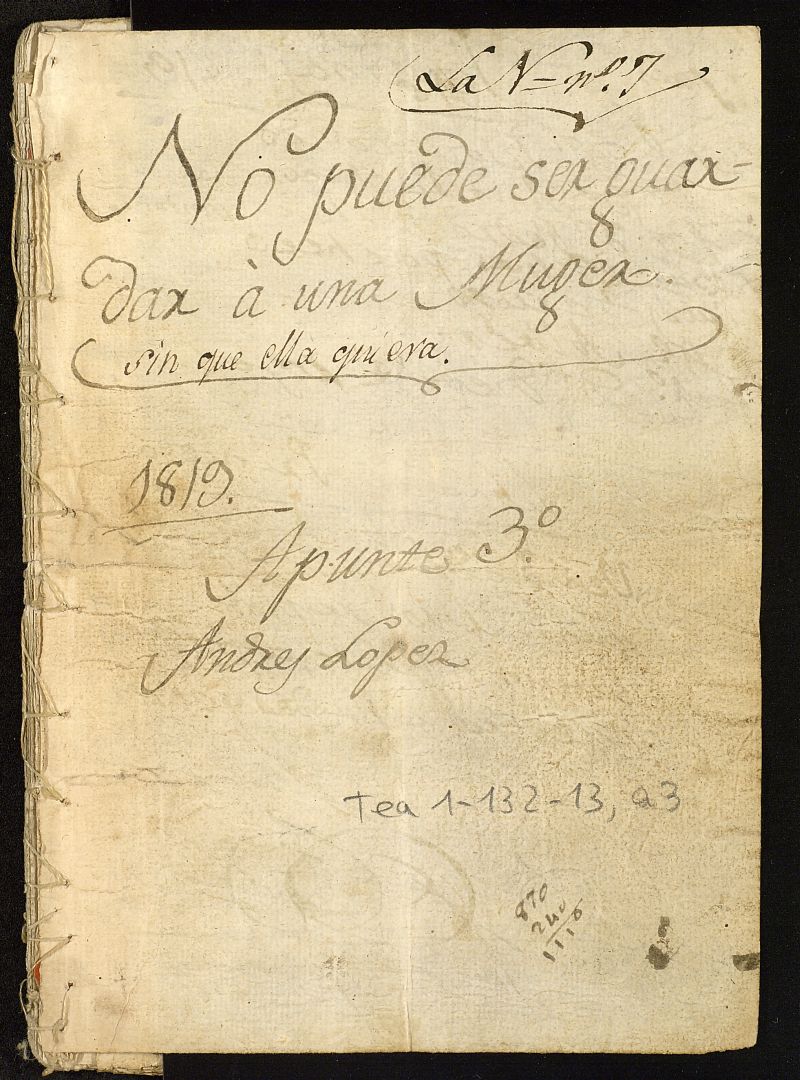 La N=nº. 7
No puede ser guar=
dar à una Muger.
sin que ella quiera.
1819.
Apunte 3º.
Andres Lopez
Tea 1-132-13, a3
870
240
1110